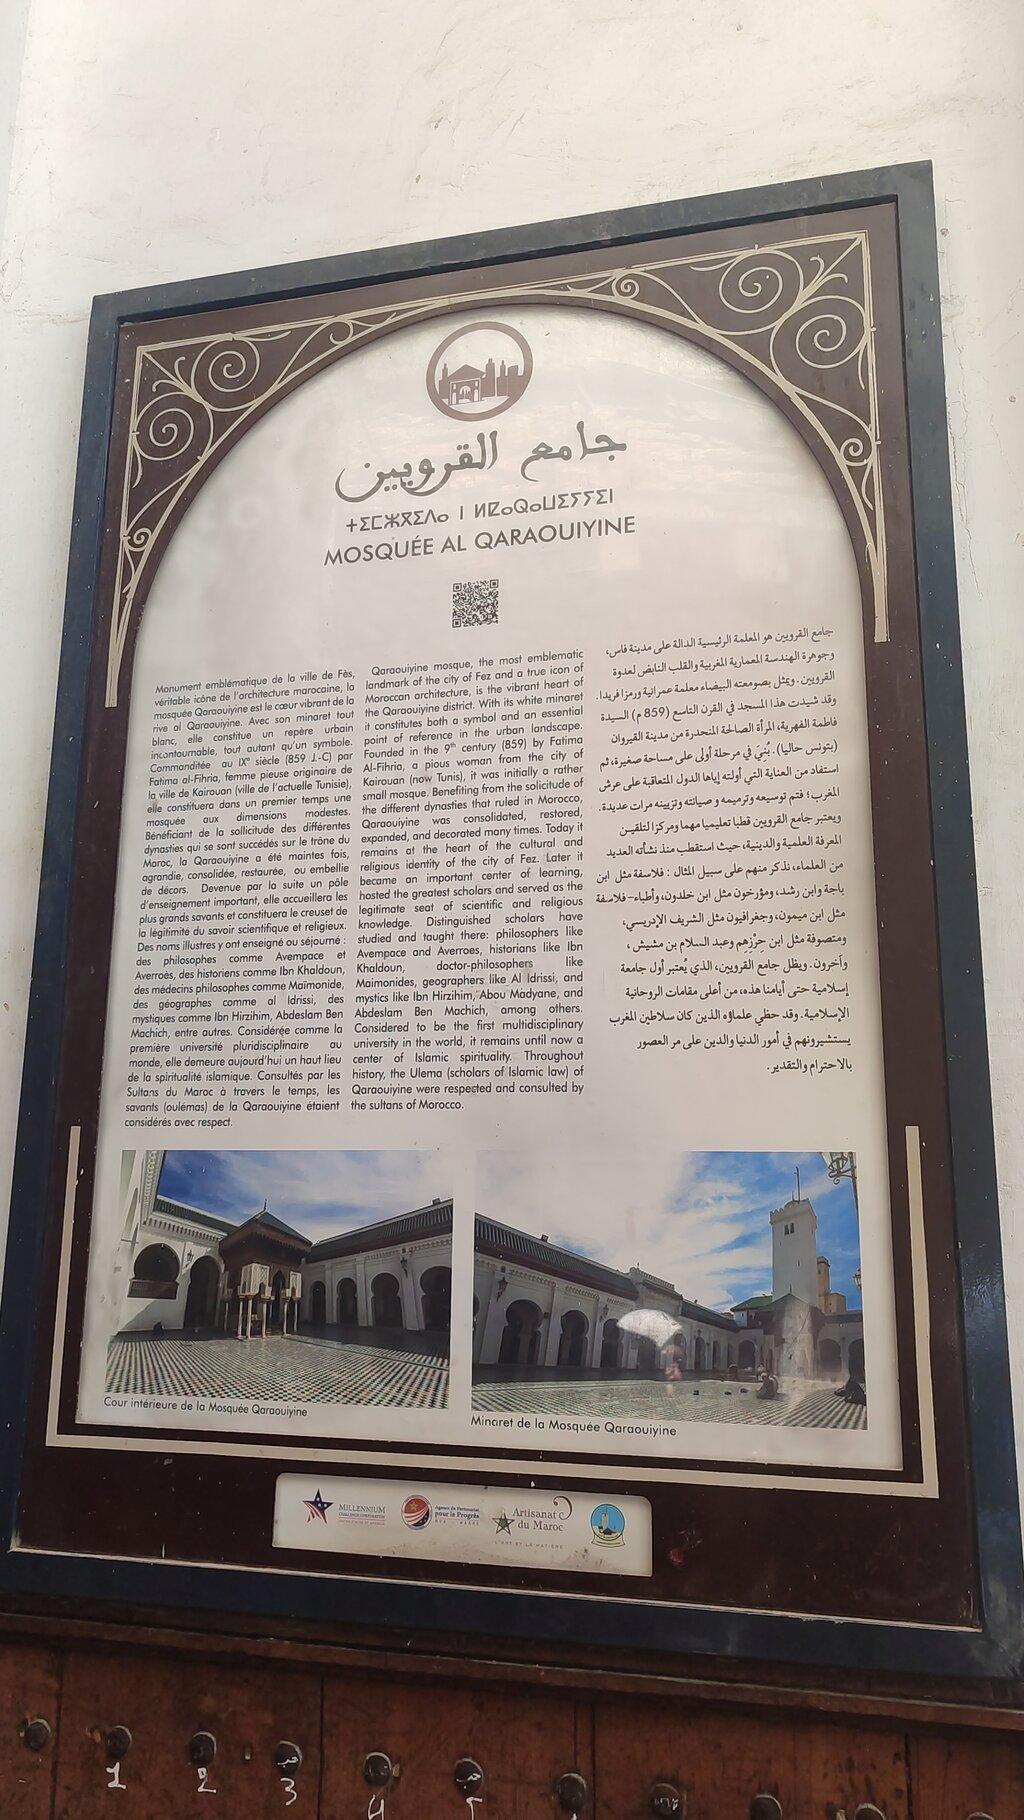 جامع القرويين
ⵜⵉⵎⵣⴳⵉⴷⴰ ⵏ ⵍⵇⴰⵕⴰⵡⵉⵢⵢⵉⵏ
MOSQUÉE AL QARAOUIYINE
Monument emblématique de la ville de Fès,
véritable icône de l'architecture marocaine, la
mosquée Qaraouiyine est le cœur vibrant de la
rive al Qaraouiyine. Avec son minaret tout
blanc, elle constitue un repère urbain
incontournable, tout autant qu'un symbole.
Commanditée au IXᵉ siècle (859 J.-C) par
Fatima al-Fihria, femme pieuse originaire de
la ville de Kairouan (ville de l'actuelle Tunisie),
elle constituera dans un premier temps une
mosquée aux dimensions modestes.
Bénéficiant de la sollicitude des différentes
dynasties qui se sont succédés sur le trône du
Maroc, la Qaraouiyine a été maintes fois,
agrandie, consolidée, restaurée, ou embellie
de décors. Devenue par la suite un pôle
d'enseignement important, elle accueillera les
plus grands savants et constituera le creuset de
la légitimité du savoir scientifique et religieux.
Des noms illustres y ont enseigné ou séjourné :
des philosophes comme Avempace et
Averroès, des historiens comme Ibn Khaldoun,
des médecins philosophes comme Maïmonide,
des géographes comme al Idrissi, des
mystiques comme Ibn Hirzihim, Abdeslam Ben
Machich, entre autres. Considérée comme la
première université pluridisciplinaire au
monde, elle demeure aujourd'hui un haut lieu
de la spiritualité islamique. Consultés par les
Sultans du Maroc à travers le temps, les
savants (oulémas) de la Qaraouiyine étaient
considérés avec respect.
Qaraouiyine mosque, the most emblematic
landmark of the city of Fez and a true icon of
Moroccan architecture, is the vibrant heart of
the Qaraouiyine district. With its white minaret
it constitutes both a symbol and an essential
point of reference in the urban landscape.
Founded in the 9ᵗʰ century (859) by Fatima
Al-Fihria, a pious woman from the city of
Kairouan (now Tunis), it was initially a rather
small mosque. Benefiting from the solicitude of
the different dynasties that ruled in Morocco,
Qaraouiyine was consolidated, restored,
expanded, and decorated many times. Today it
remains at the heart of the cultural and
religious identity of the city of Fez. Later it
became an important center of learning,
hosted the greatest scholars and served as the
legitimate seat of scientific and religious
knowledge. Distinguished scholars have
studied and taught there: philosophers like
Avempace and Averroes, historians like Ibn
Khaldoun, doctor-philosophers like
Maimonides, geographers like Al Idrissi, and
mystics like Ibn Hirzihim, Abou Madyane, and
Abdeslam Ben Machich, among others.
Considered to be the first multidisciplinary
university in the world, it remains until now a
center of Islamic spirituality. Throughout
history, the Ulema (scholars of Islamic law) of
Qaraouiyine were respected and consulted by
the sultans of Morocco.
جامع القرويين هو المعلمة الرئيسية الدالة على مدينة فاس،
وجوهرة الهندسة المعمارية المغربية والقلب النابض لعدوة
القرويين. ويمثل بصومعته البيضاء معلمة عمرانية ورمزا فريدا.
وقد شيدت هذا المسجد في القرن التاسع (859 م) السيدة
فاطمة الفهرية، المرأة الصالحة المنحدرة من مدينة القيروان
(بتونس حاليا). بُنِيَ في مرحلة أولى على مساحة صغيرة، ثم
استفاد من العناية التي أولته إياها الدول المتعاقبة على عرش
المغرب؛ فتم توسيعه وترميمه وصيانته وتزيينه مرات عديدة.
ويعتبر جامع القرويين قطبا تعليميا مهما ومركزا لتلقين
المعرفة العلمية والدينية، حيث استقطب منذ نشأته العديد
من العلماء، نذكر منهم على سبيل المثال : فلاسفة مثل ابن
باجة وابن رشد، ومؤرخون مثل ابن خلدون، وأطباء- فلاسفة
مثل ابن ميمون، وجغرافيون مثل الشريف الإدريسي،
ومتصوفة مثل ابن حرْزِهِم وعبد السلام بن مشيش ،
وآخرون. ويظل جامع القرويين، الذي يُعتبر أول جامعة
إسلامية حتى أيامنا هذه، من أعلى مقامات الروحانية
الإسلامية. وقد حظي علماؤه الذين كان سلاطين المغرب
يستشيرونهم في أمور الدنيا والدين على مر العصور
بالاحترام والتقدير.
Cour intérieure de la Mosquée Qaraouiyine
Minaret de la Mosquée Qaraouiyine
MILLENNIUM
CHALLENGE CORPORATION
Agence du Partenariat
pour le Progrès
Artisanat
du Maroc
L'ART ET LA MATIÈRE
1 2 3 4 5